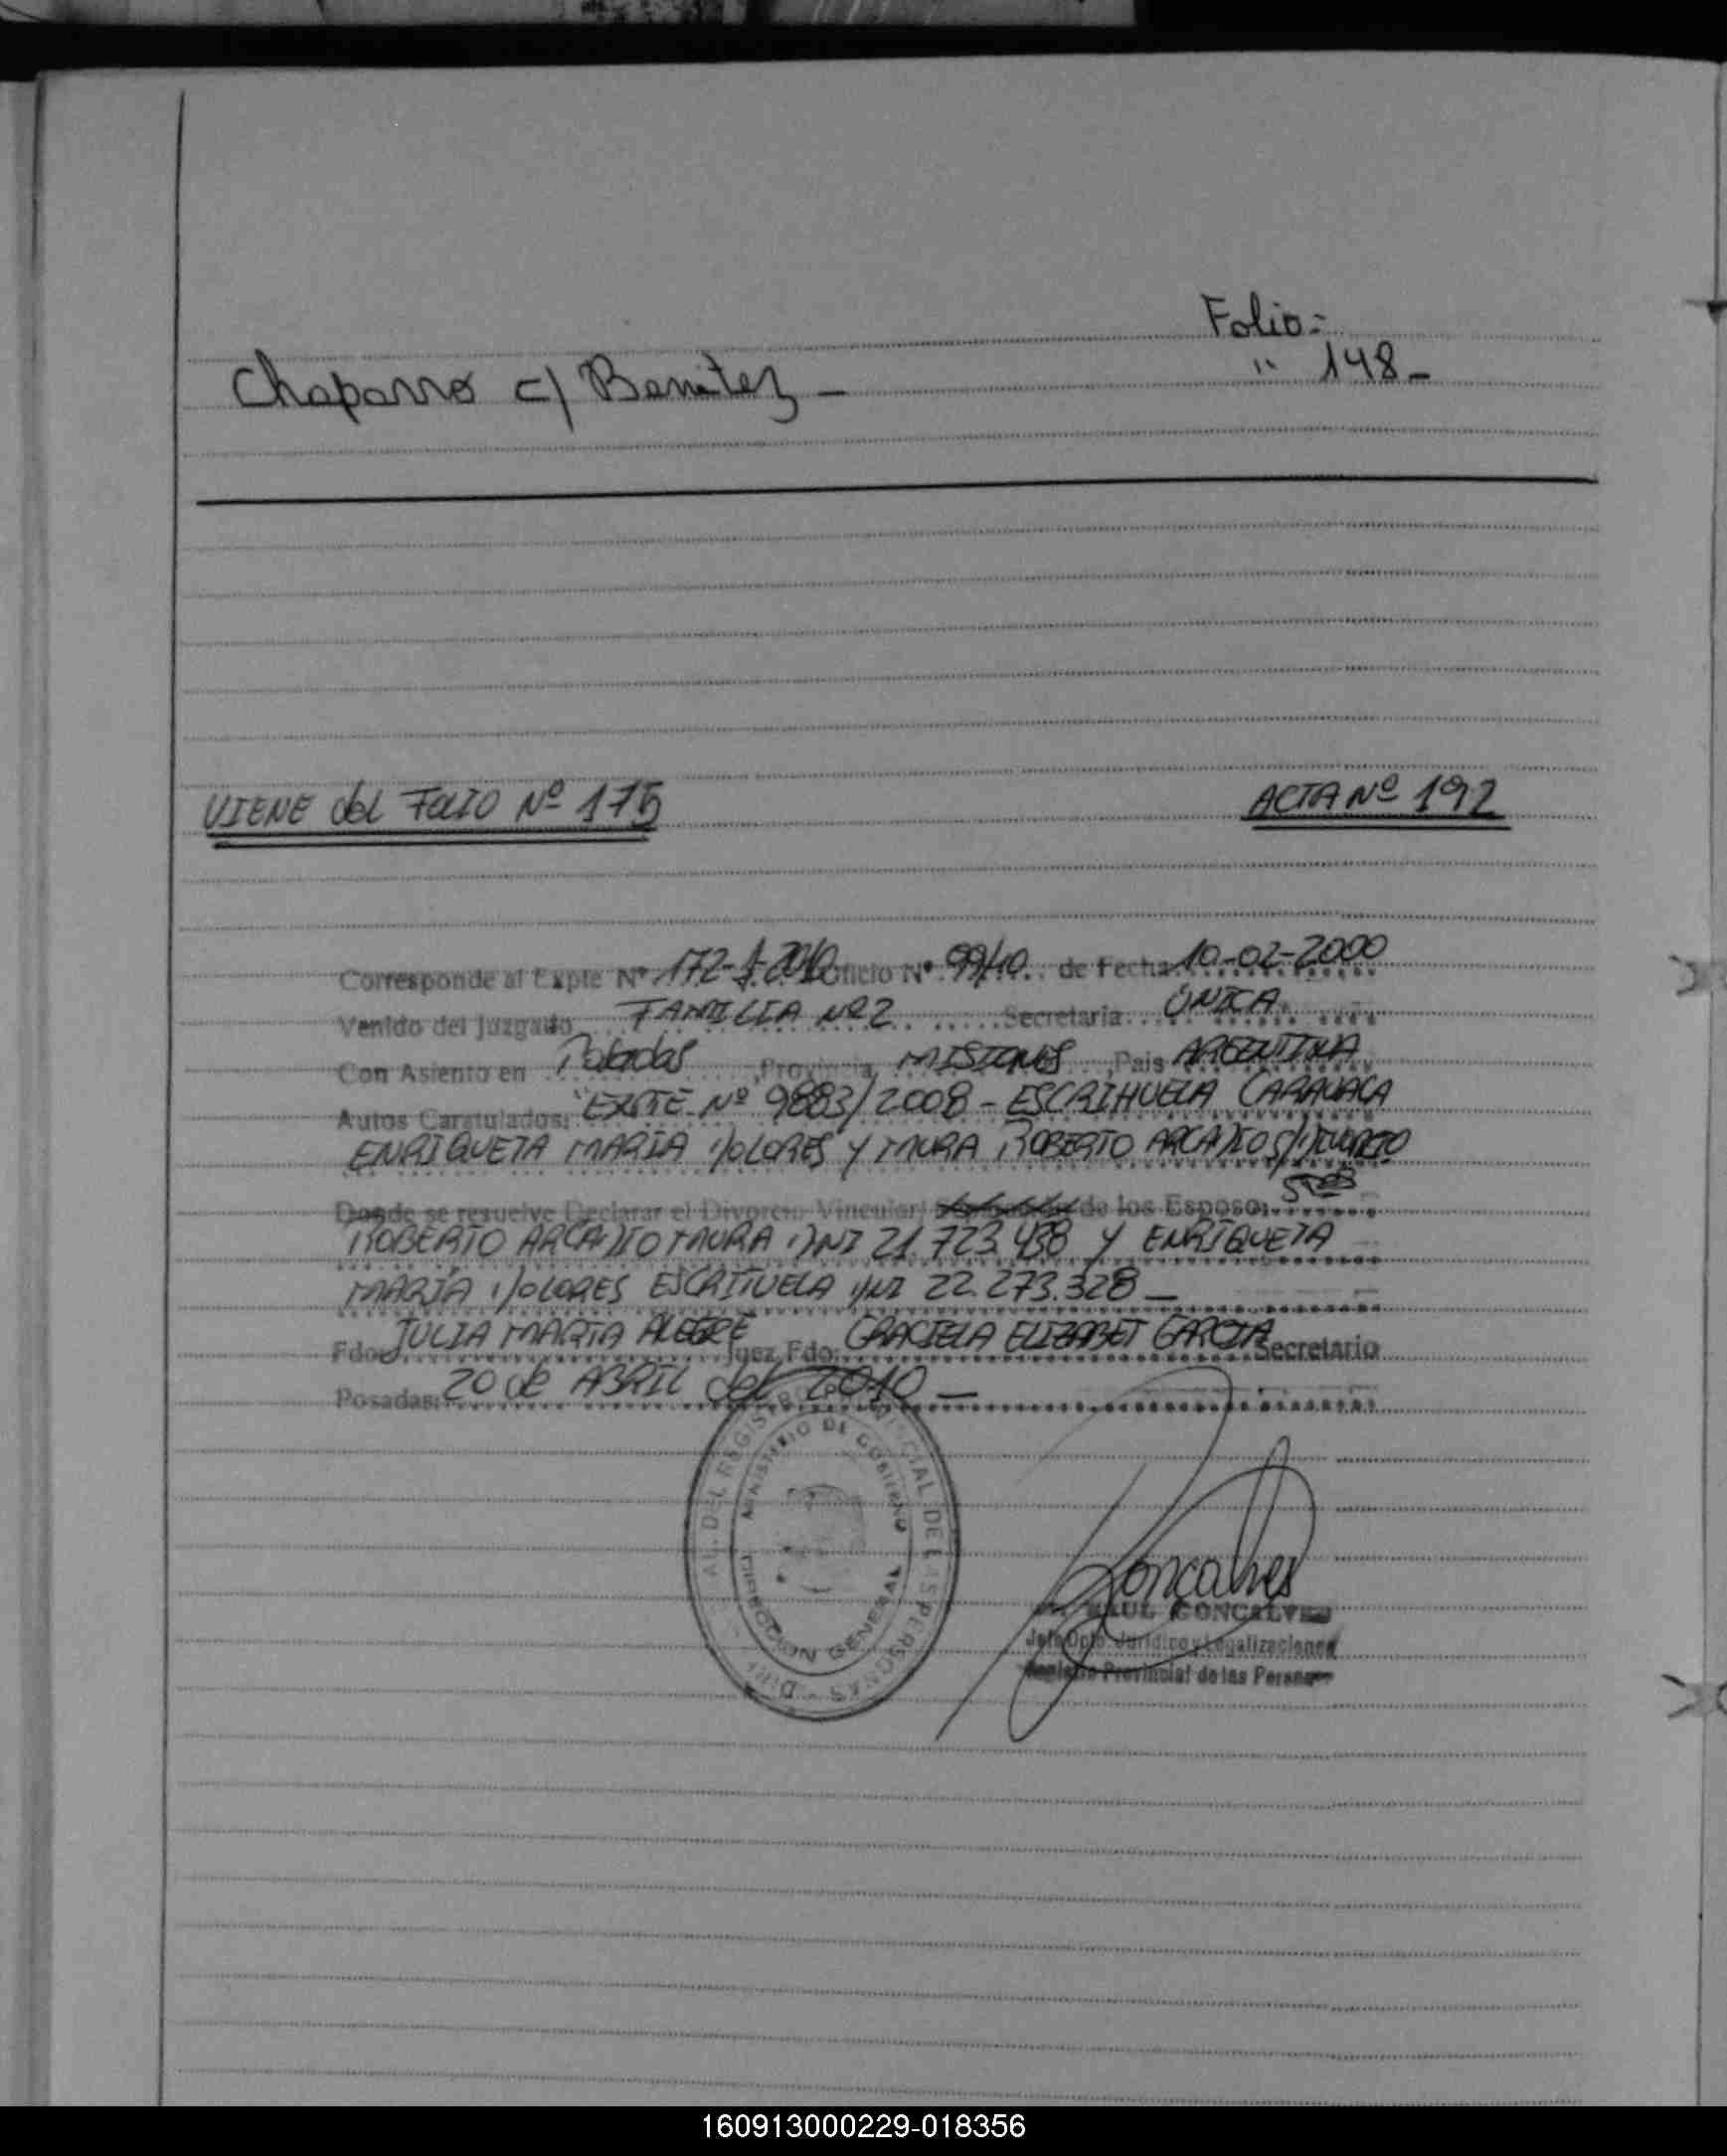 Folio:
Chaparro c/ Benitez - " 148-
VIENE del FOLIO Nº 175 ACTA Nº 192
Corresponde al Expte Nº 172- -2010 Oficio Nº 99/10 de Fecha 10-02-2000
Venido del Juzgado FAMILIA Nº 2 Secretaria ÚNICA
Con Asiento en Posadas ,Provincia MISIONES ,Pais ARGENTINA
Autos Caratulados: "EXPTE Nº 9883/2008 - ESCRIHUELA CARAVACA
ENRIQUETA MARIA DOLORES Y MURA ROBERTO ARCADIO S/ DIVORCIO
Donde se resuelve Declarar el Divorcio Vincular de los Esposos
ROBERTO ARCADIO MURA DNI 21.723.438 Y ENRIQUETA
MARÍA DOLORES ESCRIHUELA DNI 22.273.328 -
Fdo: JULIA MARTA ALEGRE Juez, Fdo: GRACIELA ELIZABET GARCIA Secretario
Posadas: 20 de ABRIL del 2010 -
DIR. GRAL. DEL REGISTRO PROVINCIAL DE LAS PERSONAS
MINISTERIO DE GOBIERNO
DIRECCION GENERAL
Goncalves
RAUL GONCALVES
Jefe Dpto. Jurídico y Legalizaciones
Registro Provincial de las Personas
160913000229-018356